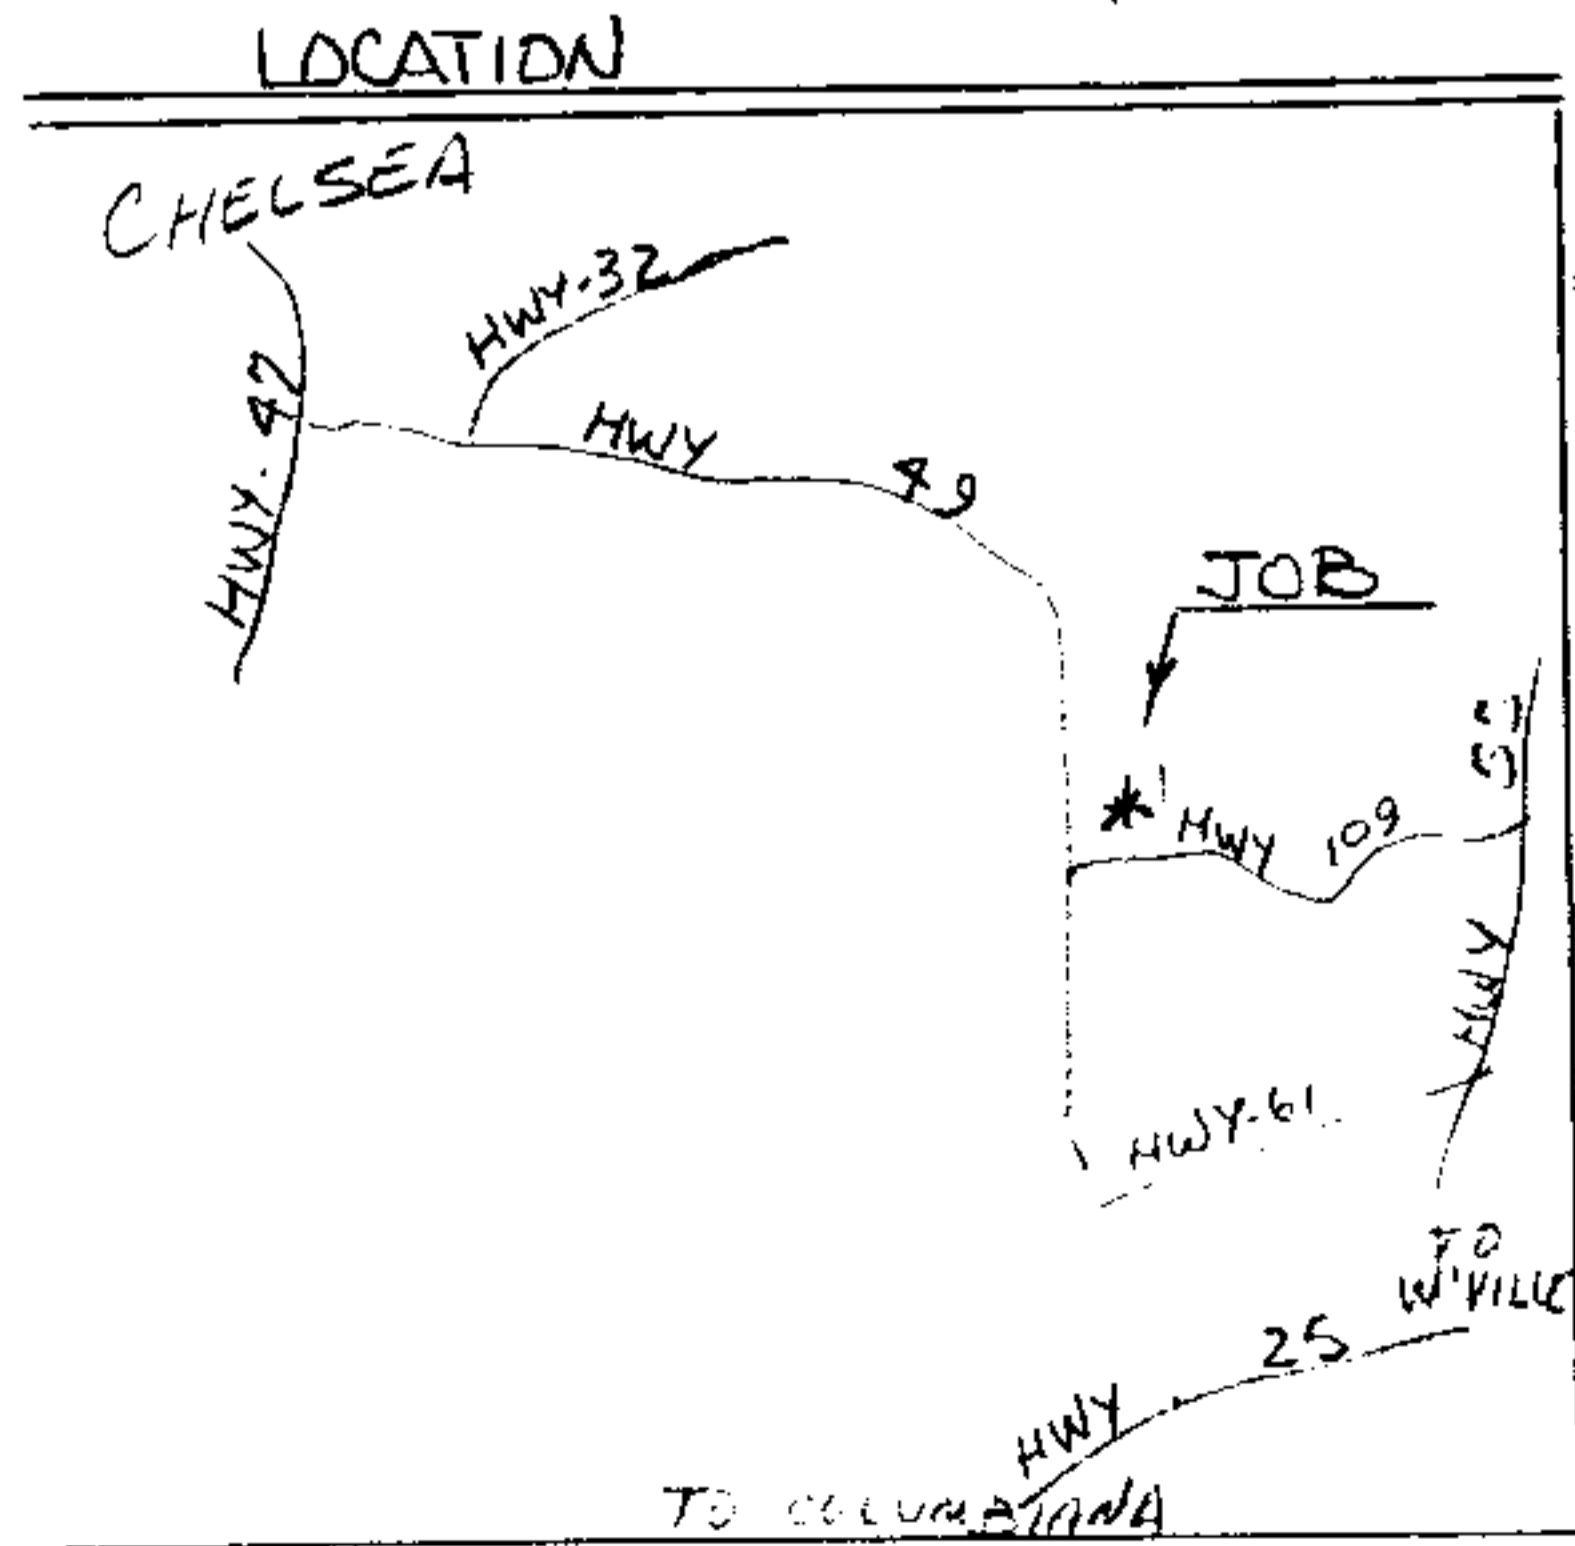 LOCATION
CHELSEA
HWY-32
HWY. 42
HWY 49
JOB
HWY 109
HWY 55
HWY-61
TO
W'VILLE
HWY 25
TO COLUMBIANA